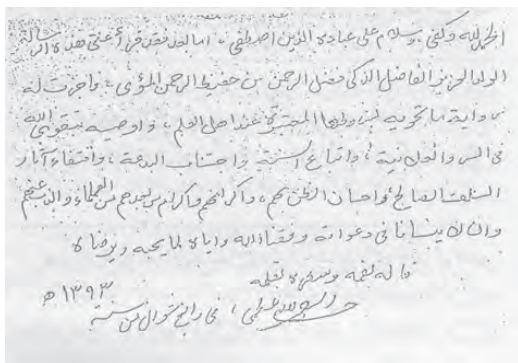 الحمد لله وكفى، وسلام على عباده الذين اصطفى، أما بعد فقد قرأ عني هذه الرسالة
الولد العزيز الفاضل الذكي فضل الرحمن بن حفيظ الرحمن المؤي، وأجزت له
برواية ما تحويه بشروطها المعتبرة عند أهل العلم، وأوصيه بتقوى الله
في السر والعلانية، واتباع السنة واجتناب البدعة، واقتفاء آثار
السلف الصالح وإحسان الظن بهم، وإكرامهم وإكرام من بعدهم من العلماء والذب عنهم
وأن لا ينسانا في دعواته وفقنا الله وإياه لما يحبه ويرضاه
قاله بفمه وسطره بقلمه
الأعظمي، في رابع شوال من سنة ١٣٩٣ ه